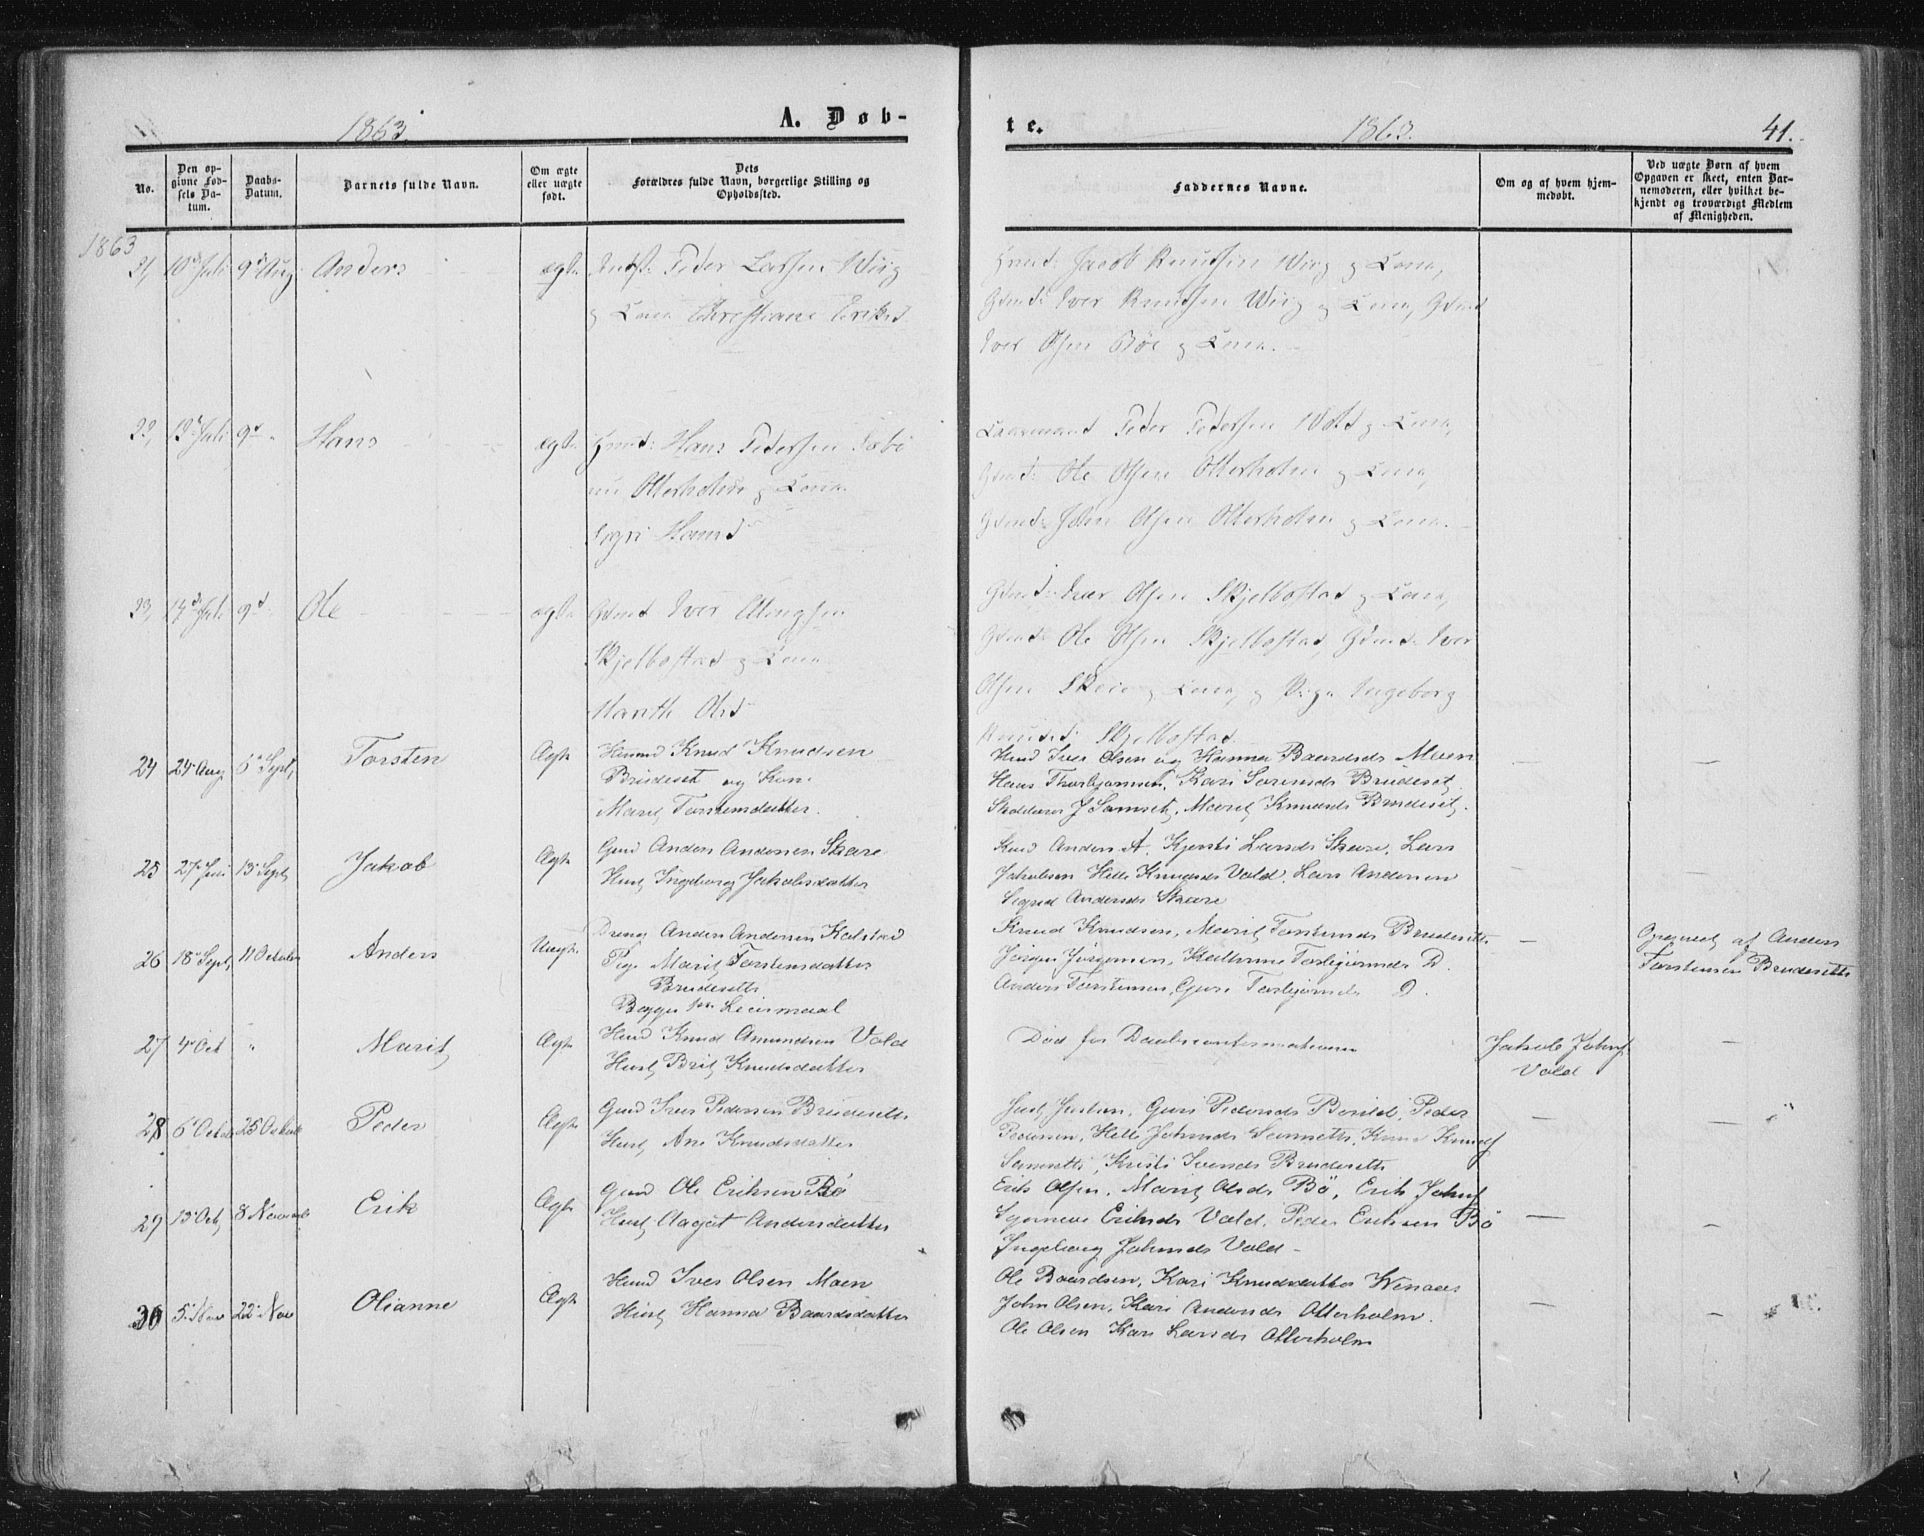 1863. A. Døb-
te. 1863. 41.
No.
Den opgivne Fødsels Datum.
Daabs-Datum.
Barnets fulde Navn.
Om ægte eller uægte født.
Dets Forældres fulde Navn, borgerlige Stilling og Opholdssted.
Faddernes Navne.
Om og af hvem hjemmedøbt.
Ved uægte Børn af hvem Opgaven er skeet, enten Barnemoderen, eller hvilket bekjendt og troværdigt Medlem af Menigheden.
1863
21, 10d Juli 9d Aug: Anders ægte Peder Larsen Wiig
og Kone Christiane Eriksd
Gmd: Jacob Knudsen Wiig og Kone,
Gdmd: Iver Knudsen Wiig og Kone, Gdmd
Iver Olsen Böe og Kone.
22, 13d Juli 9d " Hans ægte Hans Pedersen
Otterholm og Kone
Sigri Hansd
Kaarmand Peder Pedersen Wold og Kone,
Gdmd: Ole Olsen Otterholm og Kone,
Gdmd: John Olsen Otterholm og Kone.
23, 14d Juli 9d Ole ægte Gdmd Iver
Skjelbostad og Kone
Marith Olsd
Gdmd: Iver Olsen Skjelbostad og Kone,
Gdmd: Ole Olsen Skjelbostad, Gdmd: Iver
Olsen Skeie og Kone, og Pige Ingeborg
Knudsd: Skjelbostad
24 24 Aug 6 Sept, Torsten Ægte Knud Knudsen
Brudeset og Kone
Marit Torstensdatter.
Hmd Iver Olsen og Hanna Baardsds Moen
Hans Thorbjørnsen, Kari Brudeset,
J Samset, Marit Knudsds Brudeset.
25 27 Juni 13 Sept, Jakob Ægte Gmd Anders Andersen Skare
Hust, Ingeborg Jakobsdatter
Anders A. Kjersti Larsds Skare, Lars
Jakobsen Helle Knudsds Vold. Lars Andersen
Sigrid Andersds Skare
26 18 Sept, 11 October Anders Uægte Dreng Anders Andersen Kalstad
Pige Marit Torstensdatter
Brudeseth
Begges 1ste Leiermaal
Knud Knudsen, Marit Torstensds Brudeseth
Jørgen Jørgensen, Kathrine Torbjørnsds D.
Anders Torstensen, Guri Torbjørnsds D.
Opgivet af Anders
Torstensen Brudeseth
27 4 Oct " Marit, Ægte Hmd Knud Amundsen Vold
Hust, Brit, Knudsdatter
Død før Daabsconfirmationen
Jakob Johns
Vold
28 6 Octob 25 October Peder Ægte Gmd Iver Pedersen Brudeseth
Hust, Ane Knudsdatter
Guri Pedersds Peder
Pedersen, Helle Johnsds Samseth, Knud Knuds
Samseth, Kristi Iversds Brudeseth
29 13 Oct, 8 Novemb Erik Ægte Gmd Ole Eriksen Bö
Hust, Aagot Andersdatter
Erik Olsen, Marit Olsds Bö, Erik Johns
Eriksds Vold. Peder Eriksen Bö
Ingeborg Johnsds Vold -
30 5 Nov 22 Nov Olianne Ægte Hmd Iver Olsen Moen
Hust, Hanna Baardsdatter
Ole Baardsen, Kari Knudsdatter Wenaas
John Olsen, Kari Andersds Otterholm.
Ole Olsen Kari Larsds Otterholm